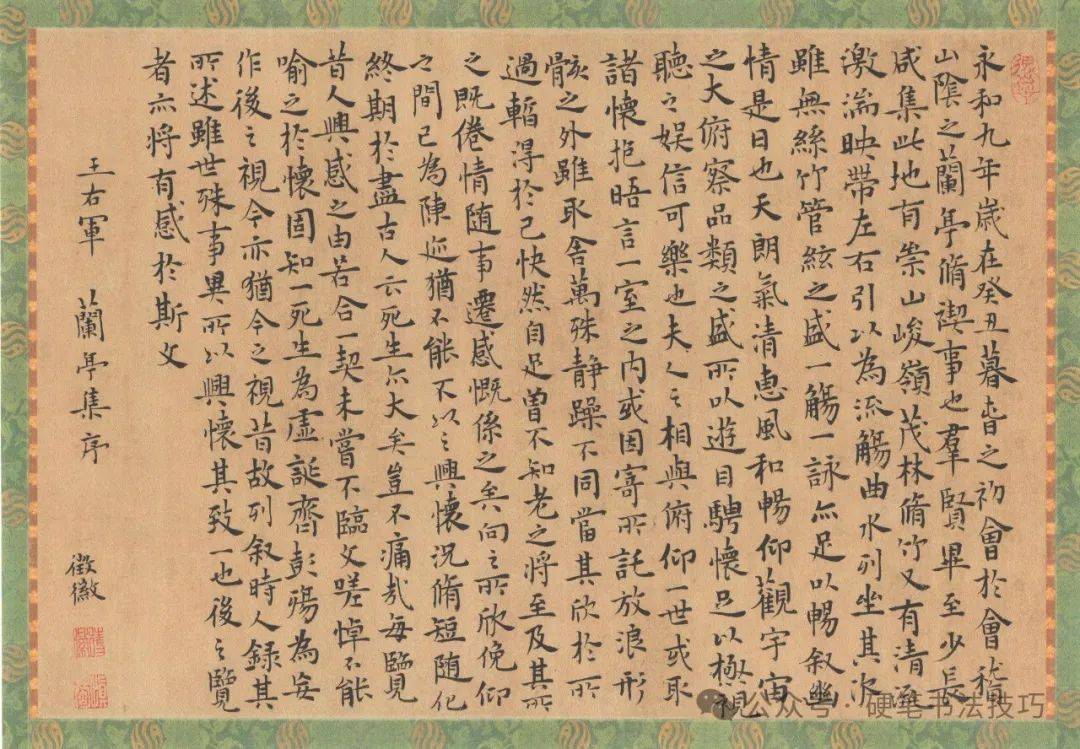 永和九年歲在癸丑暮春之初會於會稽
山陰之蘭亭脩禊事也羣賢畢至少長
咸集此地有崇山峻嶺茂林脩竹又有清流
激湍映帶左右引以為流觴曲水列坐其次
雖無絲竹管絃之盛一觴一詠亦足以暢叙幽
情是日也天朗氣清惠風和暢仰觀宇宙
之大俯察品類之盛所以遊目騁懷足以極視
聽之娛信可樂也夫人之相與俯仰一世或取
諸懷抱晤言一室之內或因寄所託放浪形
骸之外雖取舍萬殊静躁不同當其欣於所
遇暫得於己快然自足曾不知老之將至及其所
之既倦情随事遷感慨係之矣向之所欣俛仰
之間已為陳迹猶不能不以之興懷況脩短随化
終期於盡古人云死生亦大矣豈不痛哉每覽
昔人興感之由若合一契未嘗不臨文嗟悼不能
喻之於懷固知一死生為虛誕齊彭殤為妄
作後之視今亦猶今之視昔故列叙時人錄其
所述雖世殊事異所以興懷其致一也後之覽
者亦將有感於斯文
王右軍 蘭亭集序
公众号 · 硬笔书法技巧